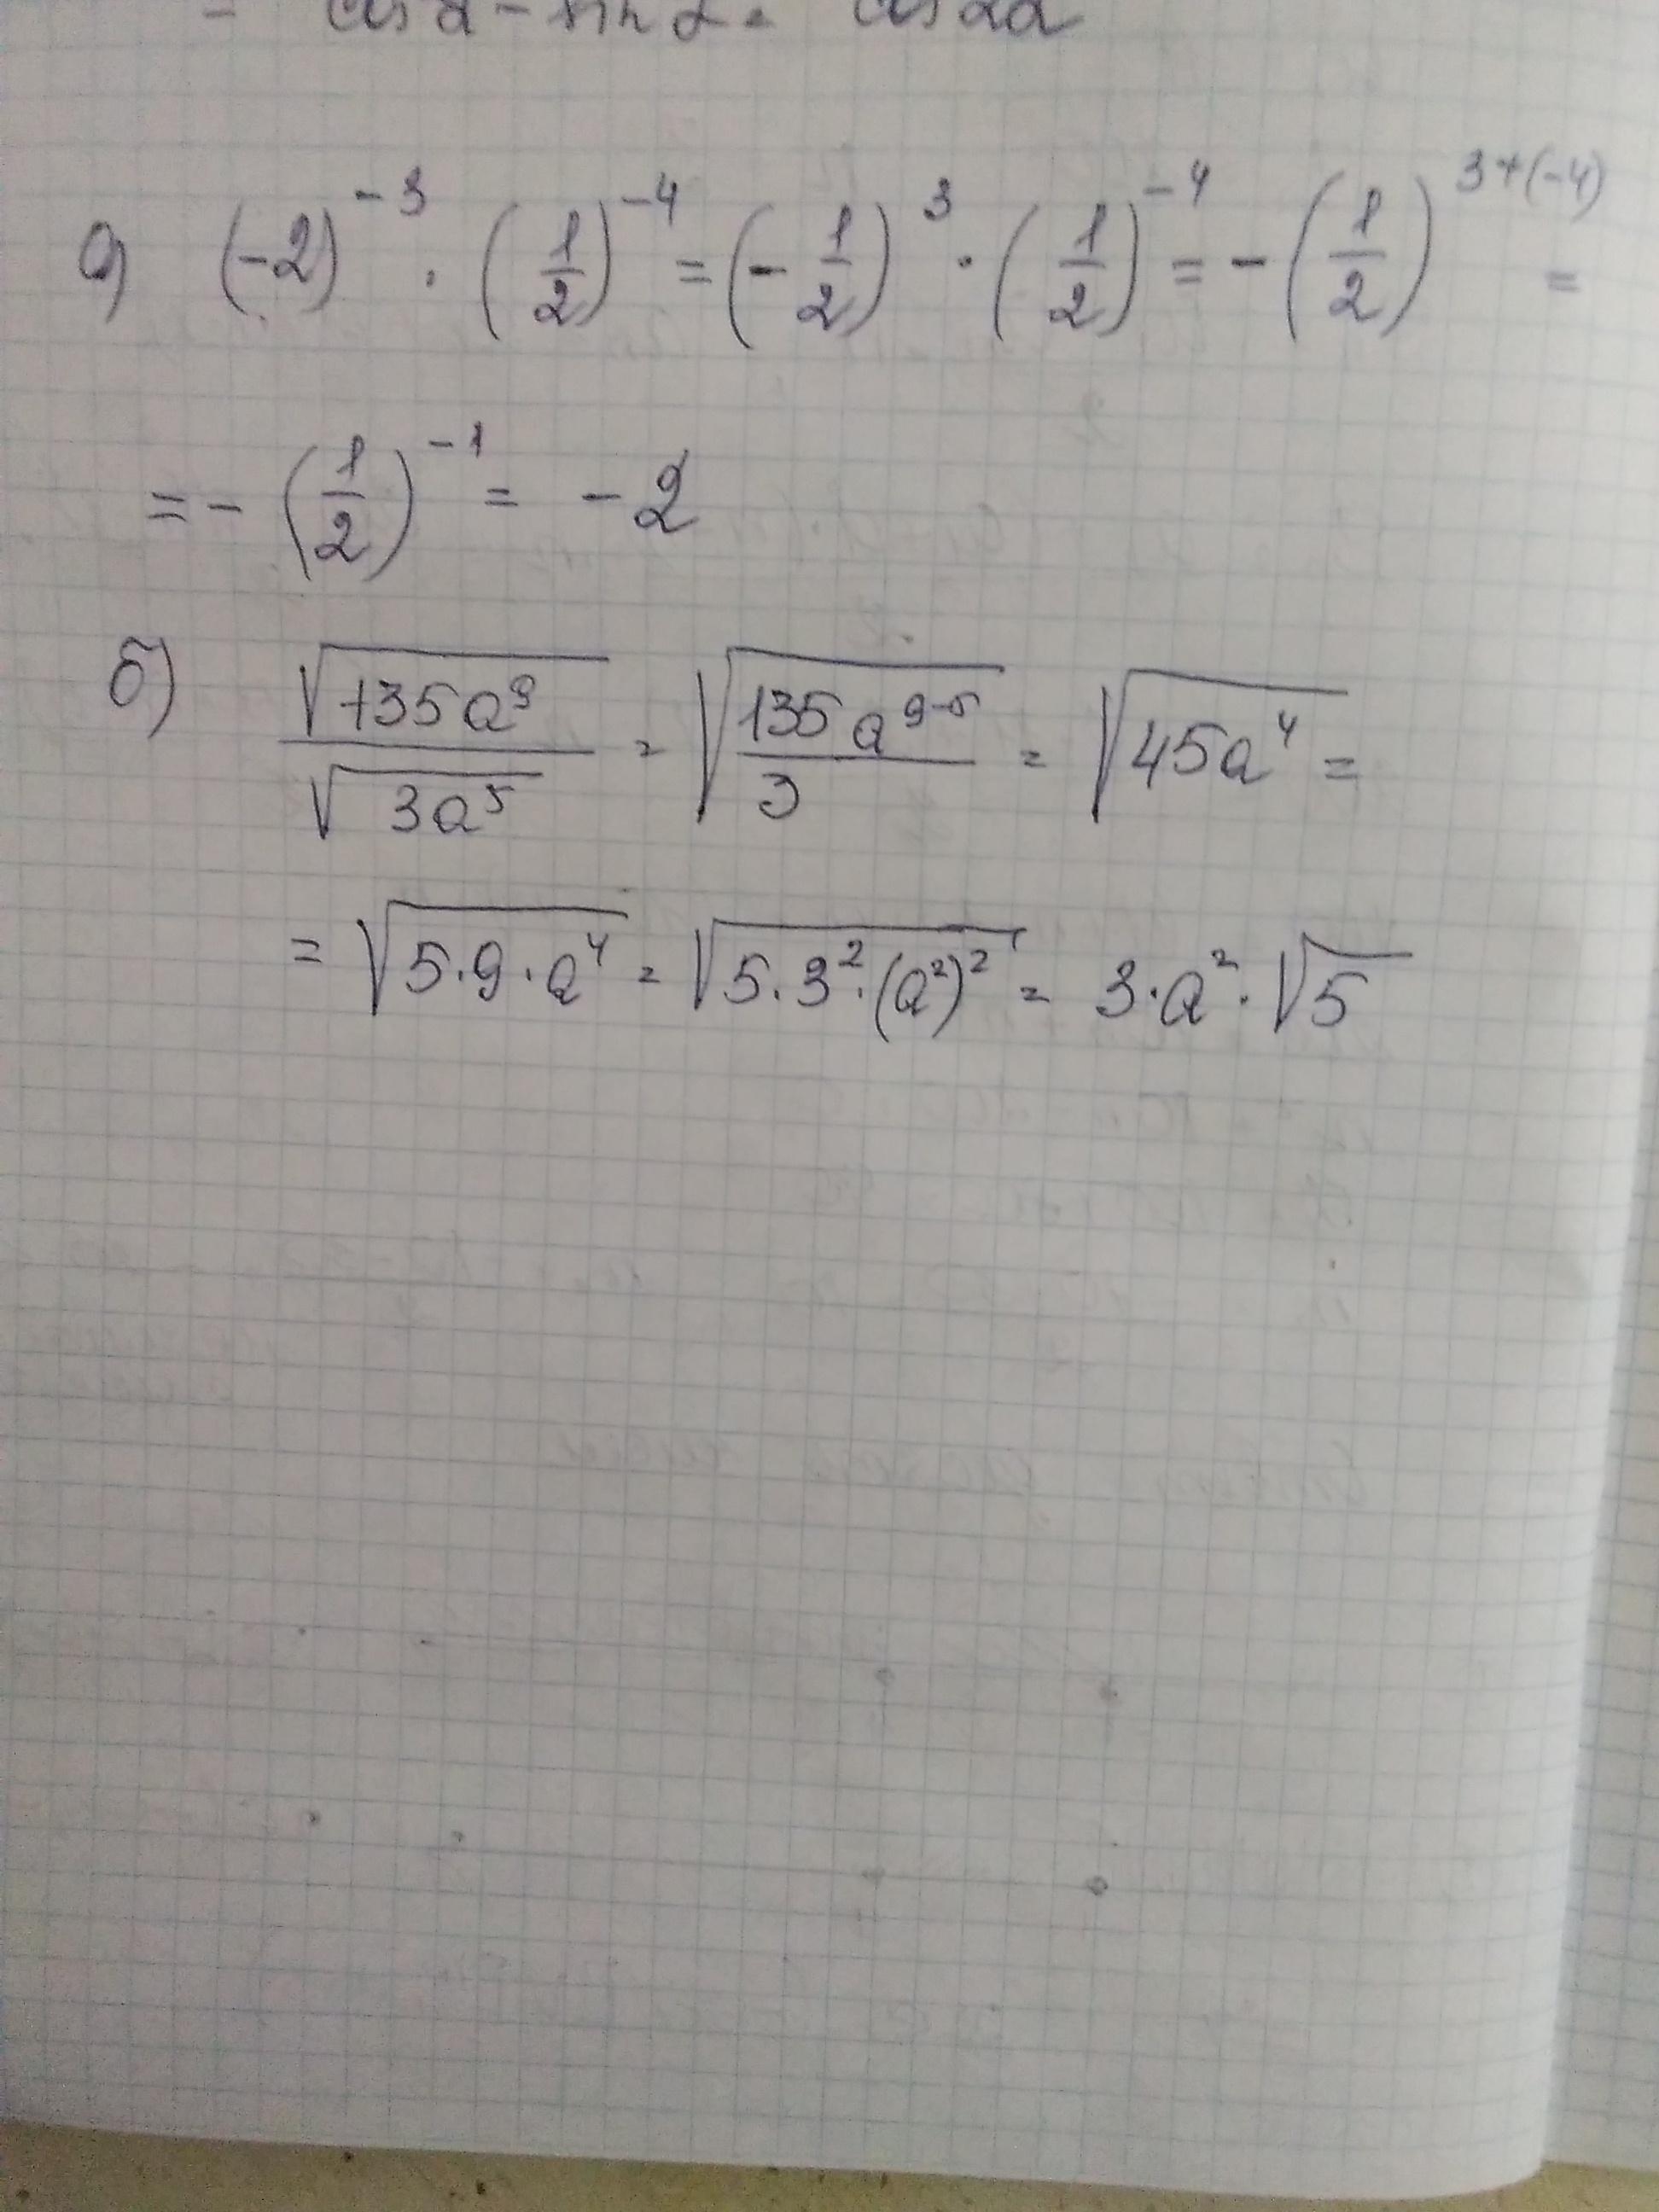 = cos α - sin α = cos 2α
а) (-2)^{-3} · (1/2)^{-4} = (-1/2)^3 · (1/2)^{-4} = -(1/2)^{3+(-4)} =
= -(1/2)^{-1} = -2
б) √(135a^9)/√(3a^5) = √(135a^{9-5}/3) = √(45a^4) =
= √(5·9·a^4) = √(5·3^2·(a^2)^2) = 3·a^2·√5